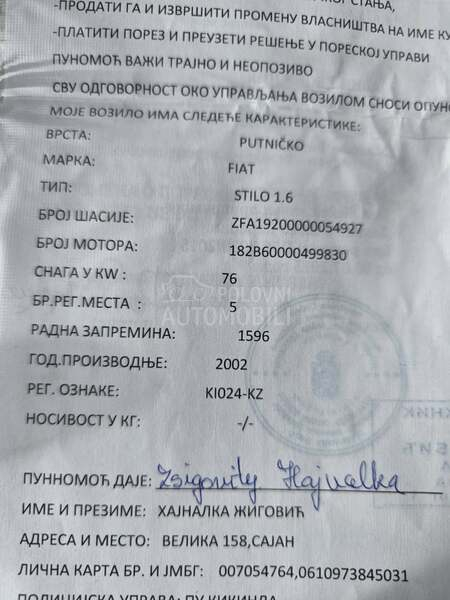 -ПРОДАТИ ГА И ИЗВРШИТИ ПРОМЕНУ ВЛАСНИШТВА НА ИМЕ
-ПЛАТИТИ ПОРЕЗ И ПРЕУЗЕТИ РЕШЕЊЕ У ПОРЕСКОЈ УПРАВИ
ПУНОМОЋ ВАЖИ ТРАЈНО И НЕОПОЗИВО
СВУ ОДГОВОРНОСТ ОКО УПРАВЉАЊА ВОЗИЛОМ СНОСИ ОПУНО
МОЈЕ ВОЗИЛО ИМА СЛЕДЕЋЕ КАРАКТЕРИСТИКЕ:
ВРСТА: PUTNIČKO
МАРКА: FIAT
ТИП: STILO 1.6
БРОЈ ШАСИЈЕ: ZFA19200000054927
БРОЈ МОТОРА: 182B60000499830
СНАГА У KW : 76
БР.РЕГ.МЕСТА : 5
POLOVNI
AUTOMOBILI
РАДНА ЗАПРЕМИНА: 1596
ГОД.ПРОИЗВОДЊЕ: 2002
РЕГ. ОЗНАКЕ: KI024-KZ
НОСИВОСТ У КГ: -/-
ПУННОМОЋ ДАЈЕ: Zsigovity Hajnalka
ИМЕ И ПРЕЗИМЕ: ХАЈНАЛКА ЖИГОВИЋ
АДРЕСА И МЕСТО: ВЕЛИКА 158,САЈАН
ЛИЧНА КАРТА БР. И ЈМБГ: 007054764,0610973845031
ПОЛИЦИЈСКА УПРАВА: ПУ КИКИНДА